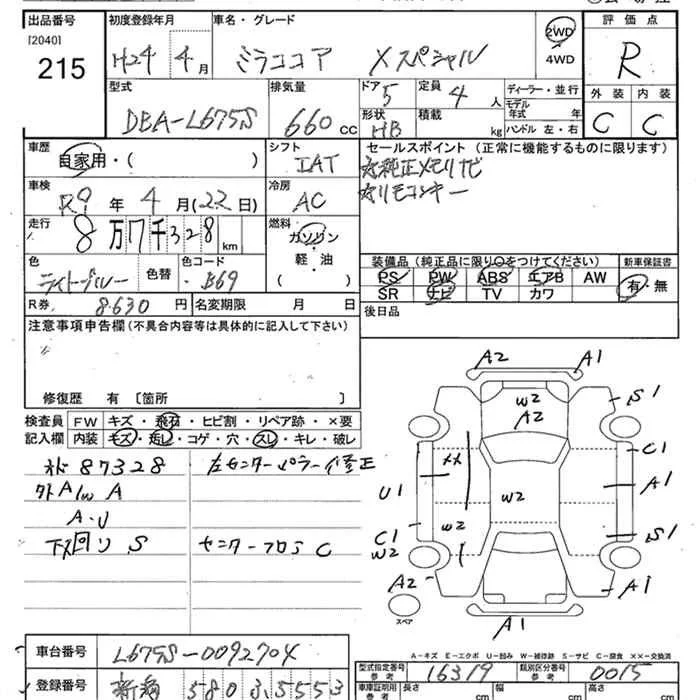 出品番号
[2040]
215
初度登録年月
H24 4月
車名・グレード
ミラココア Xスペシャル
2WD
4WD
評価点
R
外装 内装
C C
型式
DBA-L675S
排気量
660 CC
ドア
5
定員
4人
形状
HB
積載
kg
ディーラー・並行
モデル年式 年
ハンドル 左・右
車歴
自家用・( )
シフト
IAT
セールスポイント(正常に機能するものに限ります)
☆純正メモリナビ
☆リモコンキー
車検
R9年 4月(22日)
冷房
AC
走行
8万7千328km
燃料
ガソリン
軽・油
( )
色
ライトブルー
色替
色コード
B69
装備品(純正品に限り○をつけてください)
PS PW ABS エアB AW
SR ナビ TV カワ
新車保証書
有・無
R券 8,630円
名変期限 月 日
後日品
注意事項申告欄(不具合内容等は具体的に記入して下さい)
修復歴 有〔箇所 〕
検査員記入欄
FW キズ・飛石・ヒビ割・リペア跡・×要
内装 キズ・汚し・コゲ・穴・スレ・キレ・破レ
メト 87328 左センターピラー修正
外 A1w A
A・U
下回り S センターフロア C
A2 A1
W2
A2
S1
C1
××
U1
A1
W2
W2
C1
W2
S1
A2
A1
スペア
A1
A-キズ E-エクボ U-凹み W-補修跡 S-サビ C-腐食 ××-交換済
車台番号
L675S-0092704
登録番号
新潟 580 ふ 5553
型式指定番号 参考
16319
類別区分番号 参考
0015
車庫証明用 参考
長さ cm
幅 cm
cm